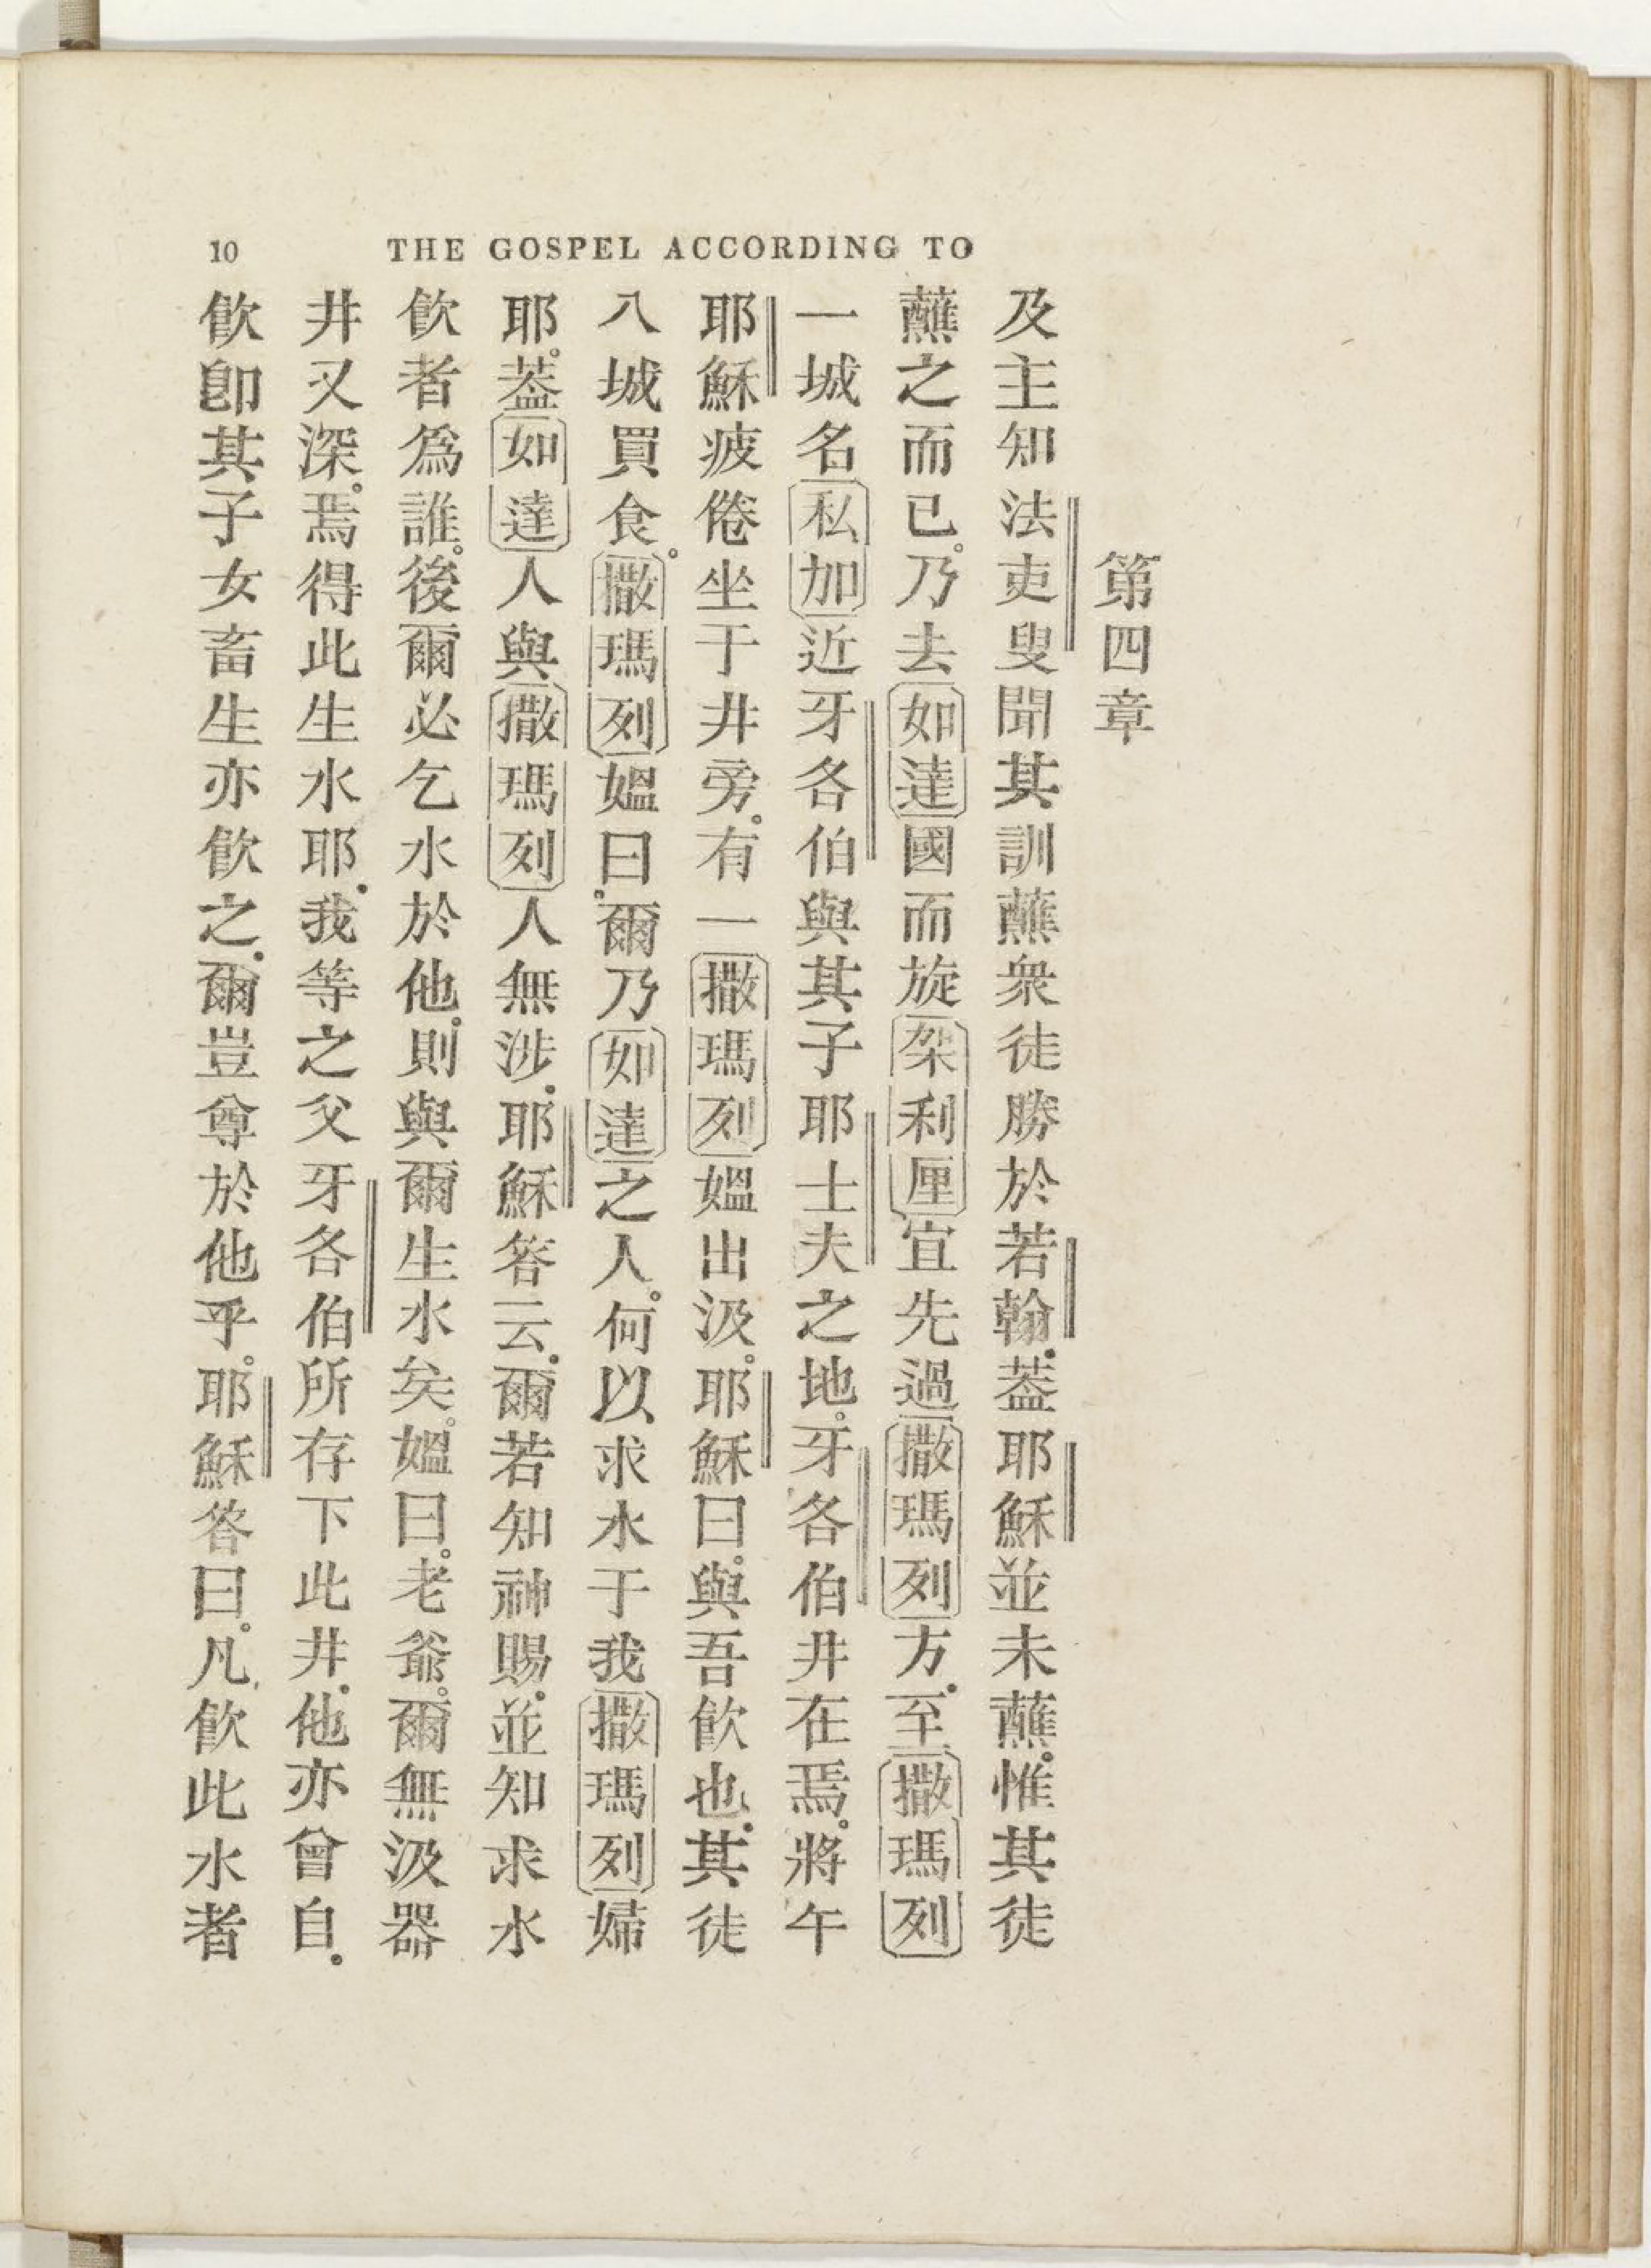 10 THE GOSPEL ACCORDING TO
第四章
及主知法吏叟聞其訓蘸衆徒勝於若翰。葢耶穌並未蘸。惟其徒
蘸之而已。乃去如達國而旋架利厘宜先過撒瑪列方。至撒瑪列
一城名私加近牙各伯與其子耶士夫之地。牙各伯井在焉。將午
耶穌疲倦坐于井旁。有一撒瑪列媼出汲。耶穌曰。與吾飮也。其徒
八城買食。撒瑪列媼曰。爾乃如達之人。何以求水于我撒瑪列婦
耶。葢如達人與撒瑪列人無涉。耶穌答云。爾若知神賜。並知求水
飮者爲誰。後爾必乞水於他。則與爾生水矣。媼曰。老爺。爾無汲器
井又深。焉得此生水耶。我等之父牙各伯所存下此井。他亦曾自。
飮卽其子女畜生亦飮之。爾豈尊於他乎。耶穌答曰。凡飮此水者